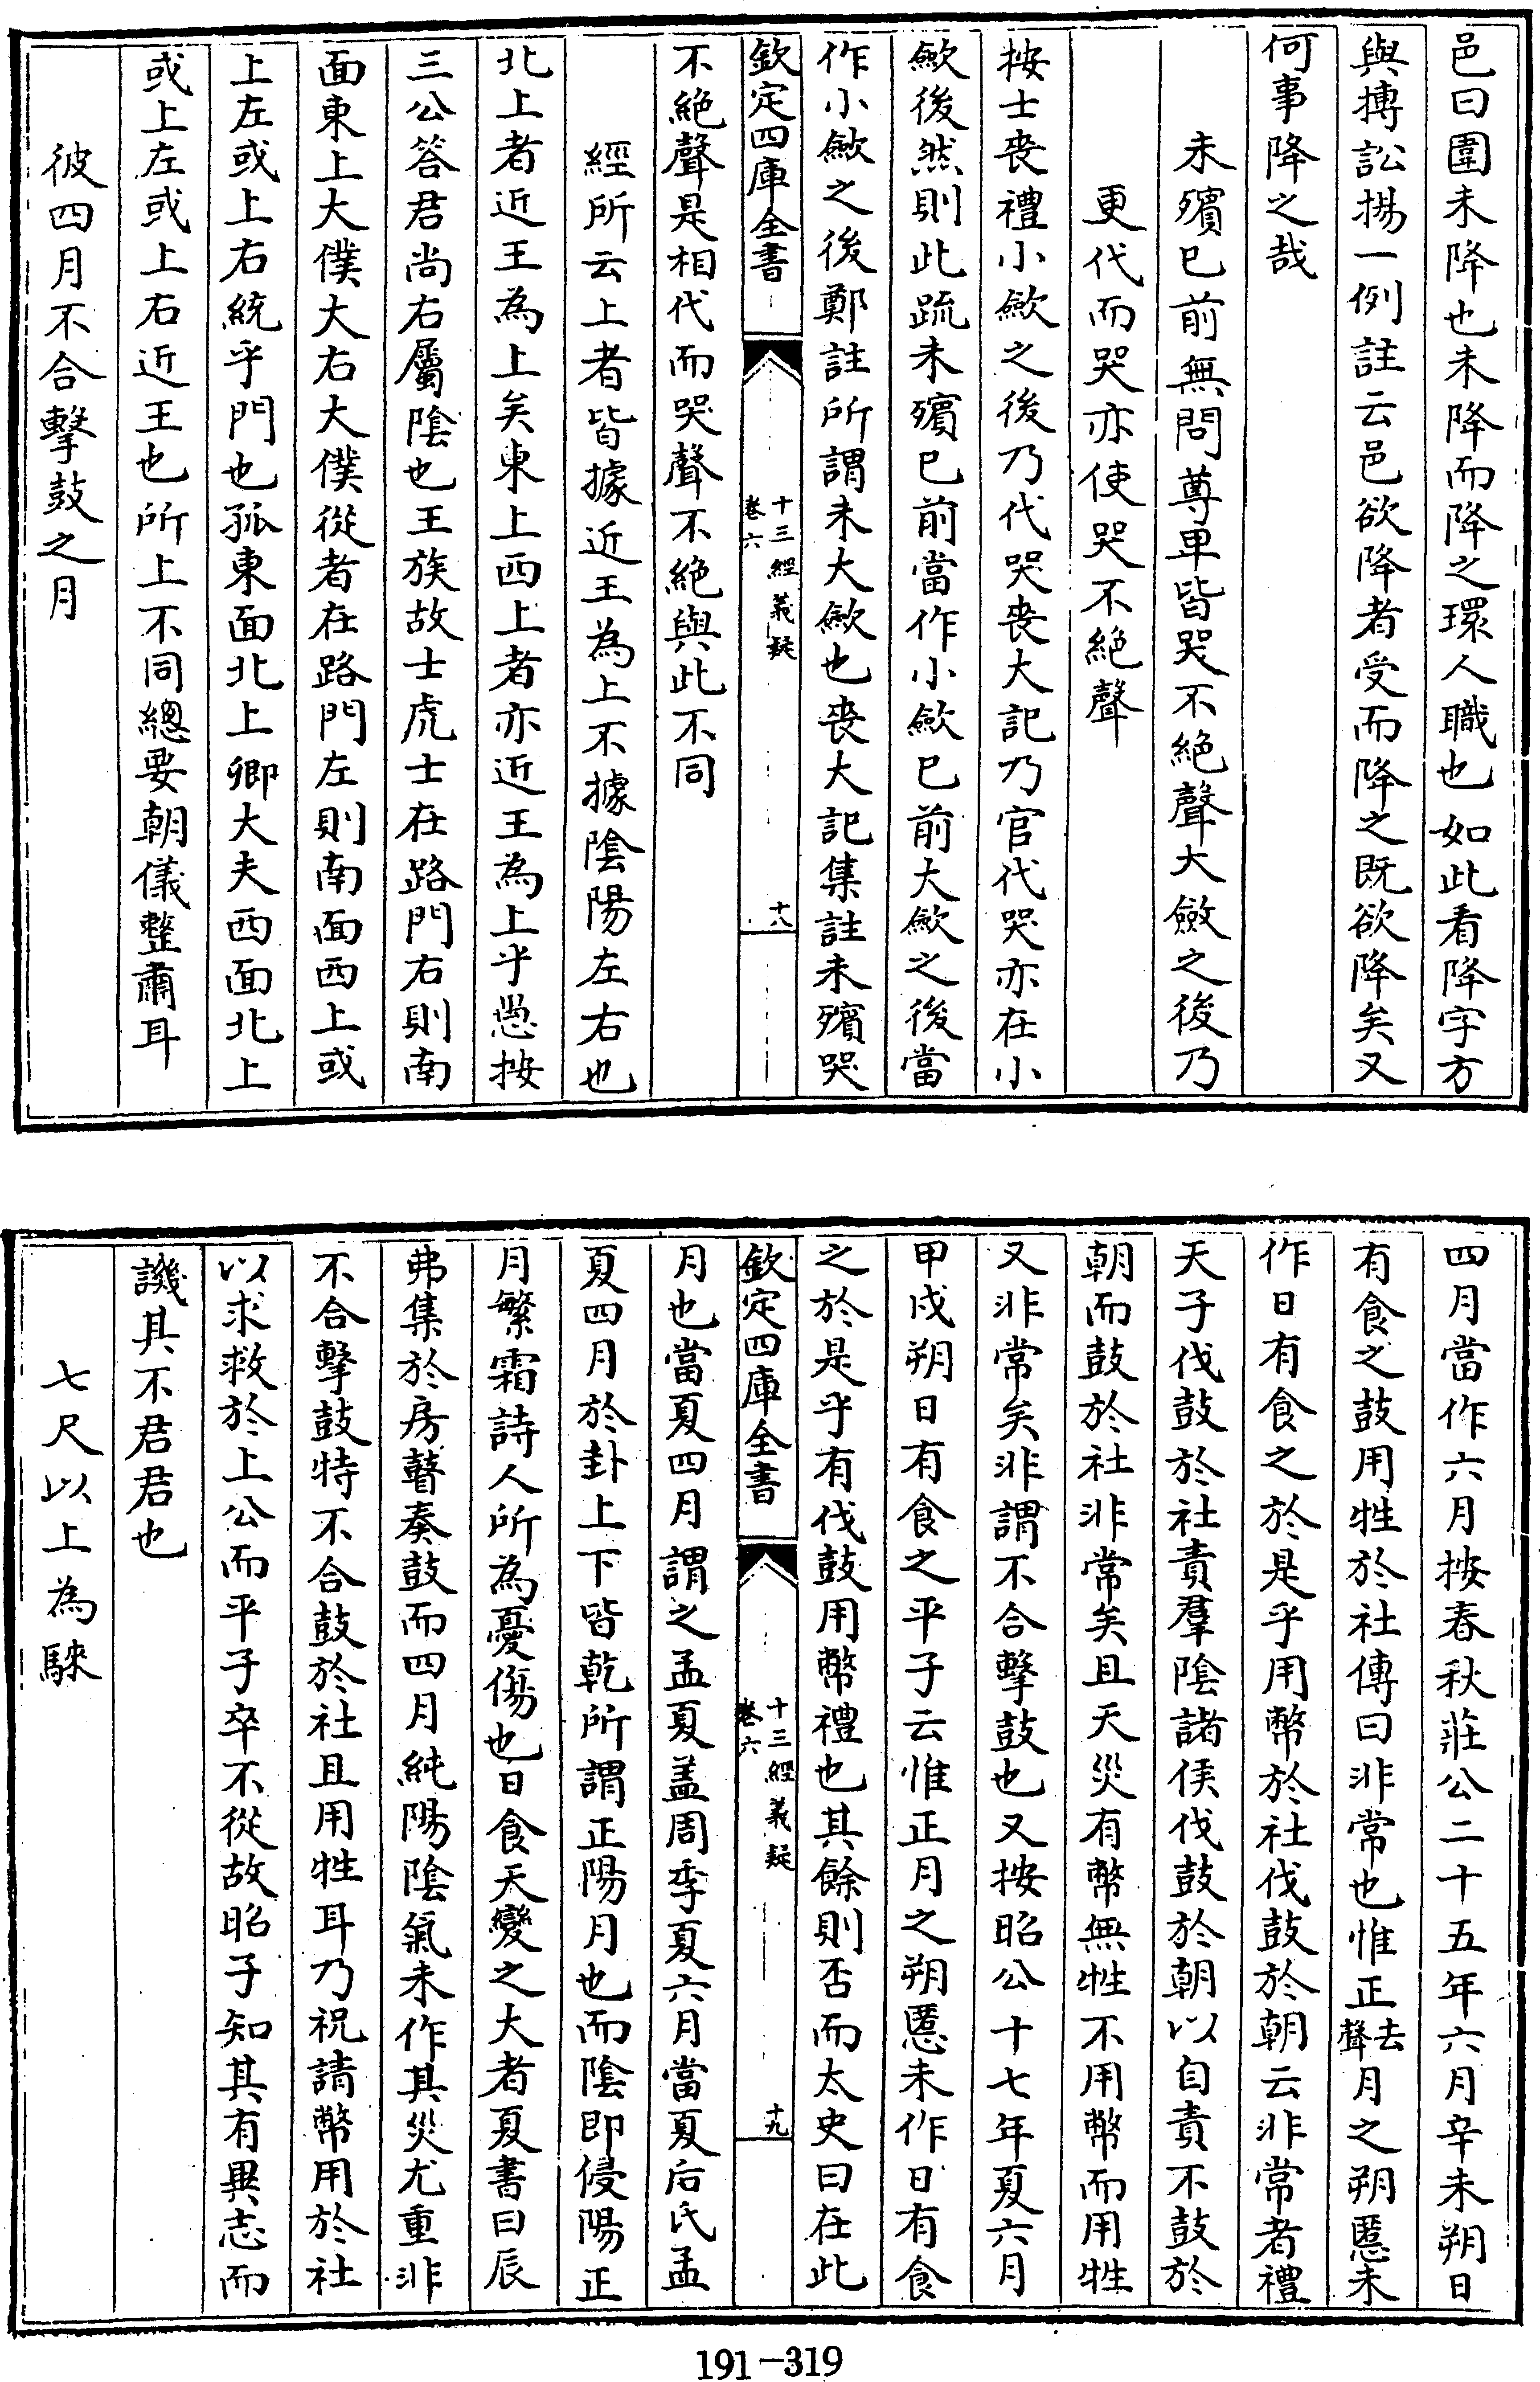 邑曰圍未降也未降而降之環人職也如此看降字方
與搏訟揚一例註云邑欲降者受而降之既欲降矣又
何事降之哉
未殯已前無問尊卑皆哭不絶聲大斂之後乃
更代而哭亦使哭不絶聲
按士喪禮小歛之後乃代哭喪大記乃官代哭亦在小
歛後然則此疏未殯已前當作小歛已前大歛之後當
作小歛之後鄭註所謂未大歛也喪大記集註未殯哭
欽定四庫全書
十三經義疑
卷六
十八
不絶聲是相代而哭聲不絶與此不同
經所云上者皆據近王為上不據陰陽左右也
北上者近王為上矣東上西上者亦近王為上乎愚按
三公答君尚右屬陰也王族故士虎士在路門右則南
面東上大僕大右大僕從者在路門左則南面西上或
上左或上右統乎門也孤東面北上卿大夫西面北上
或上左或上右近王也所上不同總要朝儀整肅耳
彼四月不合擊鼓之月
四月當作六月按春秋莊公二十五年六月辛未朔日
有食之鼓用牲於社傳曰非常也惟正去聲月之朔慝未
作日有食之於是乎用幣於社伐鼓於朝云非常者禮
天子伐鼓於社責羣陰諸侯伐鼓於朝以自責不鼓於
朝而鼓於社非常矣且天災有幣無牲不用幣而用牲
又非常矣非謂不合擊鼓也又按昭公十七年夏六月
甲戌朔日有食之平子云惟正月之朔慝未作日有食
之於是乎有伐鼓用幣禮也其餘則否而太史曰在此
欽定四庫全書
十三經義疑
卷六
十九
月也當夏四月謂之孟夏盖周季夏六月當夏后氏孟
夏四月於卦上下皆乾所謂正陽月也而陰即侵陽正
月繁霜詩人所為憂傷也日食天變之大者夏書曰辰
弗集於房瞽奏鼓而四月純陽陰氣未作其災尤重非
不合擊鼓特不合鼓於社且用牲耳乃祝請幣用於社
以求救於上公而平子卒不從故昭子知其有異志而
譏其不君君也
七尺以上為騋
191-319